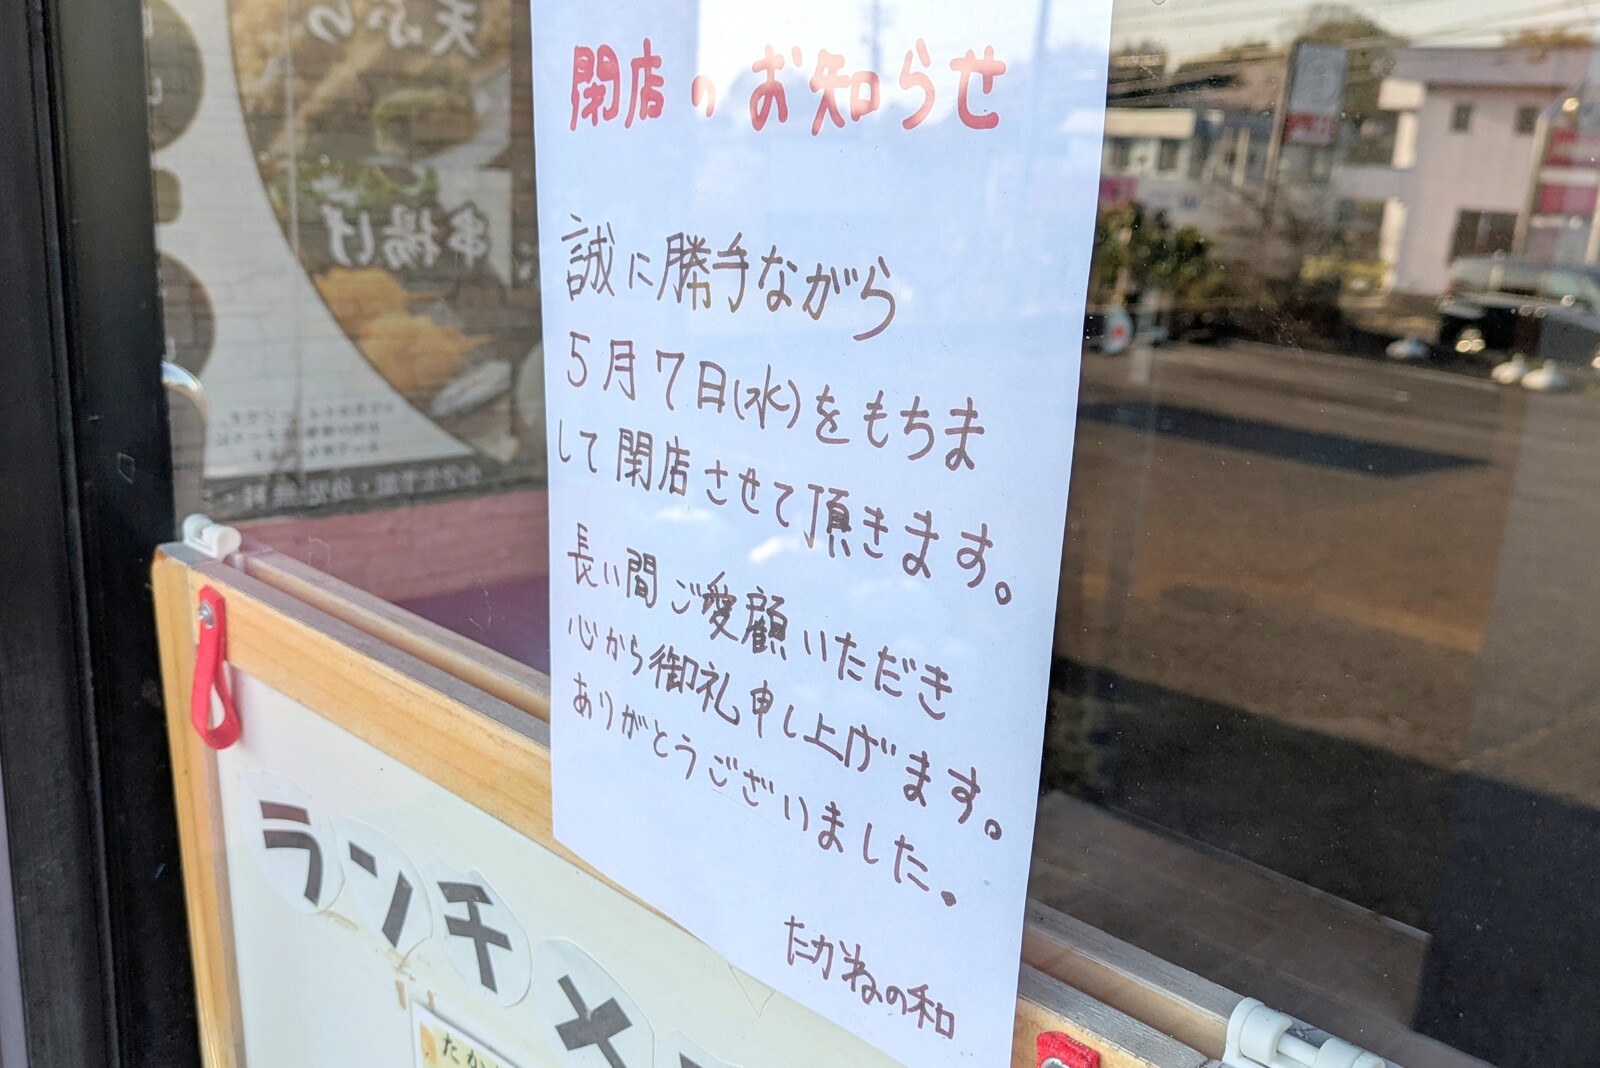 閉店のお知らせ
誠に勝手ながら
5月7日(水)をもちま
して閉店させて頂きます。
長い間ご愛顧いただき
心から御礼申し上げます。
ありがとうございました。
たがねの和
天ぷら
串揚げ
ランチメ